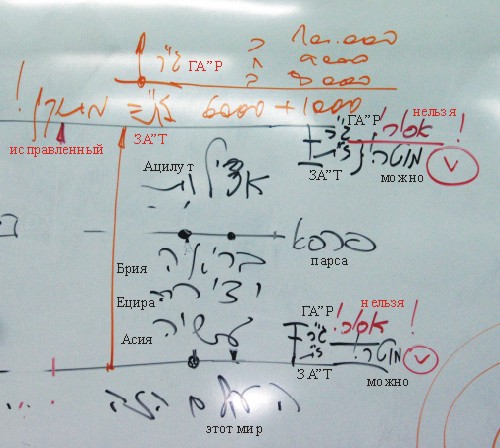 ג"ר ГА"Р
י 10.000
ח 9000
ז 7000
! מתוקן ז"ת 6000 + 1000
исправленный ЗА"Т
ГА"Р нельзя
ג"ר אסור!
ז"ת מותר! V
ЗА"Т можно
Ацилут אצילות
פרסא
парса
Брия בריאה
Ецира יצירה
Асия עשיה
ГА"Р нельзя
ג"ר אסור!
ז"ת מותר! V
ЗА"Т можно
העולם הזה
этот мир